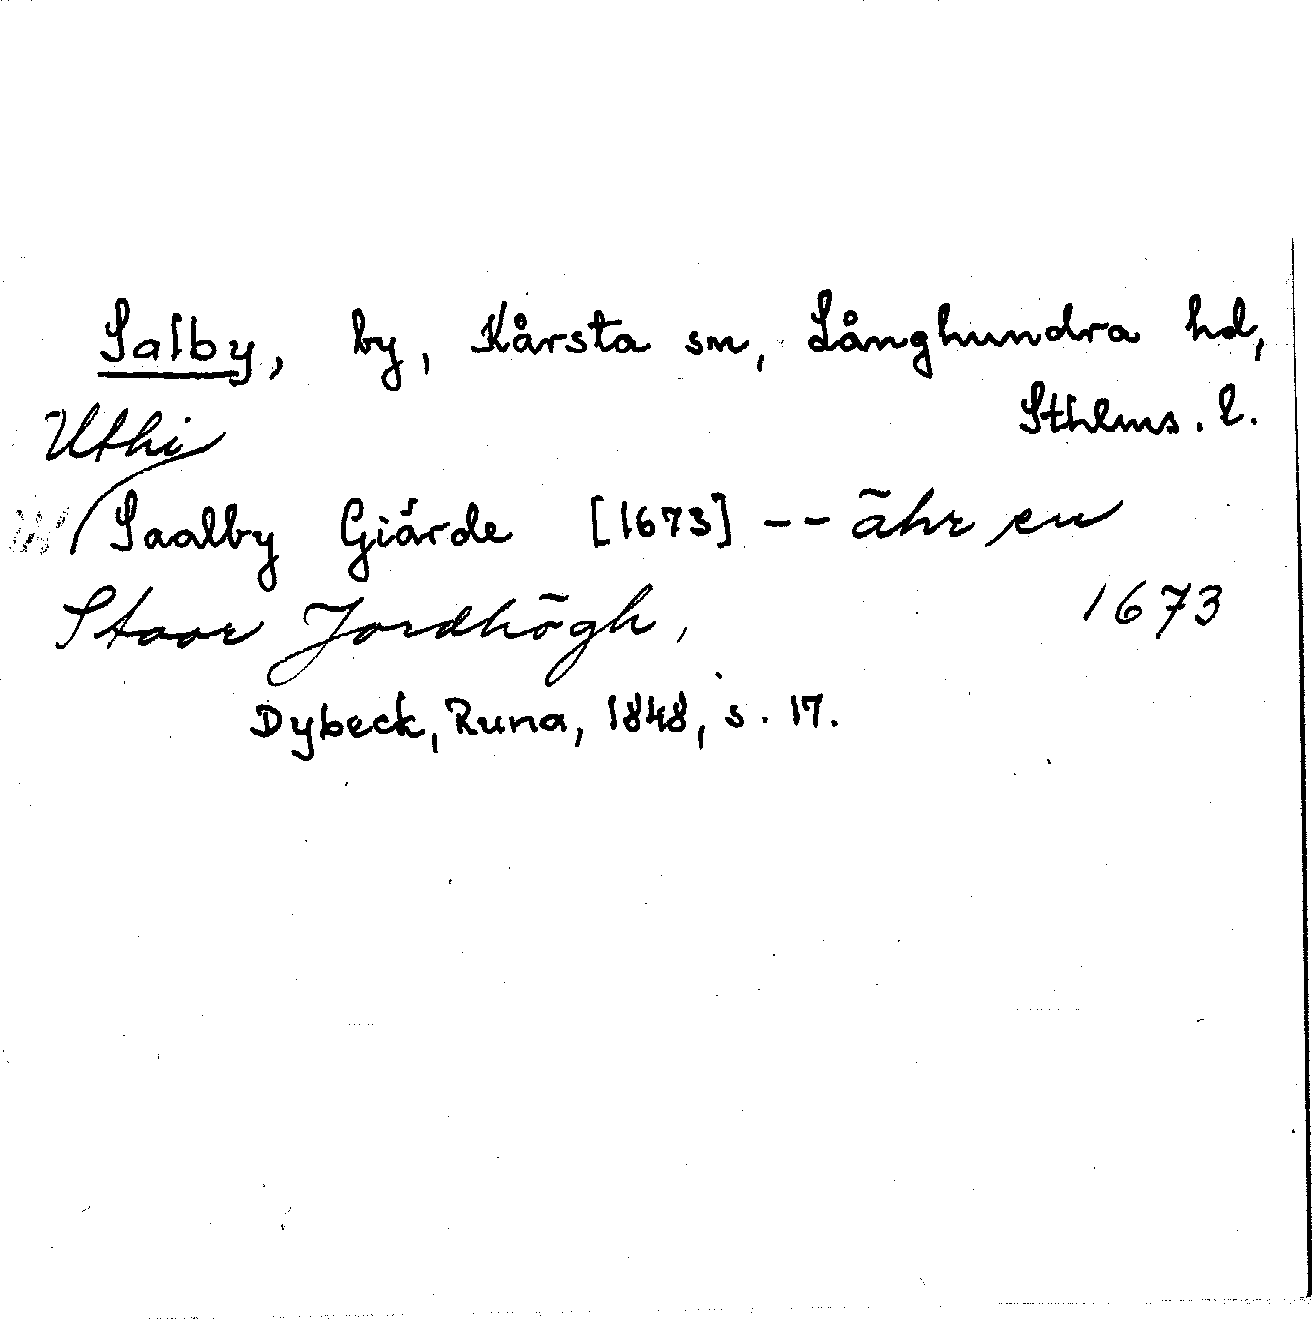 Salby, by, Kårsta sn, Långhundra hd,
Sthlms. l.
Uthi
Saalby Giärde [1673] -- ähr en
Stoor Jordhögh, 1673
Dybeck, Runa, 1848, s. 17.